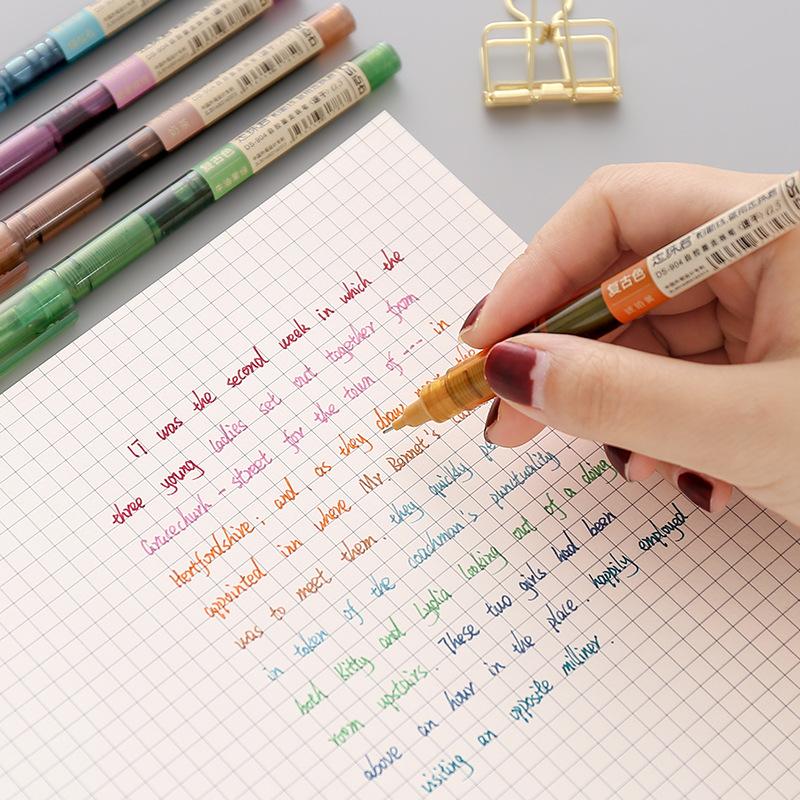 复古色
DS-904
复古色
DS-904
0.5
IT was the second week in which the
three young ladies set out together from
Gracechurh - street for the town of --- in
Hertfordshire; and as they the
appointed inn where Mr. Bennet's
was to meet them. they quickly
in token of the coachman's punctuality
both Kitty and Lydia looking out of a
room upstairs. These two girls had been
above an hour in the place. happily employed
visiting an opposite milliner.